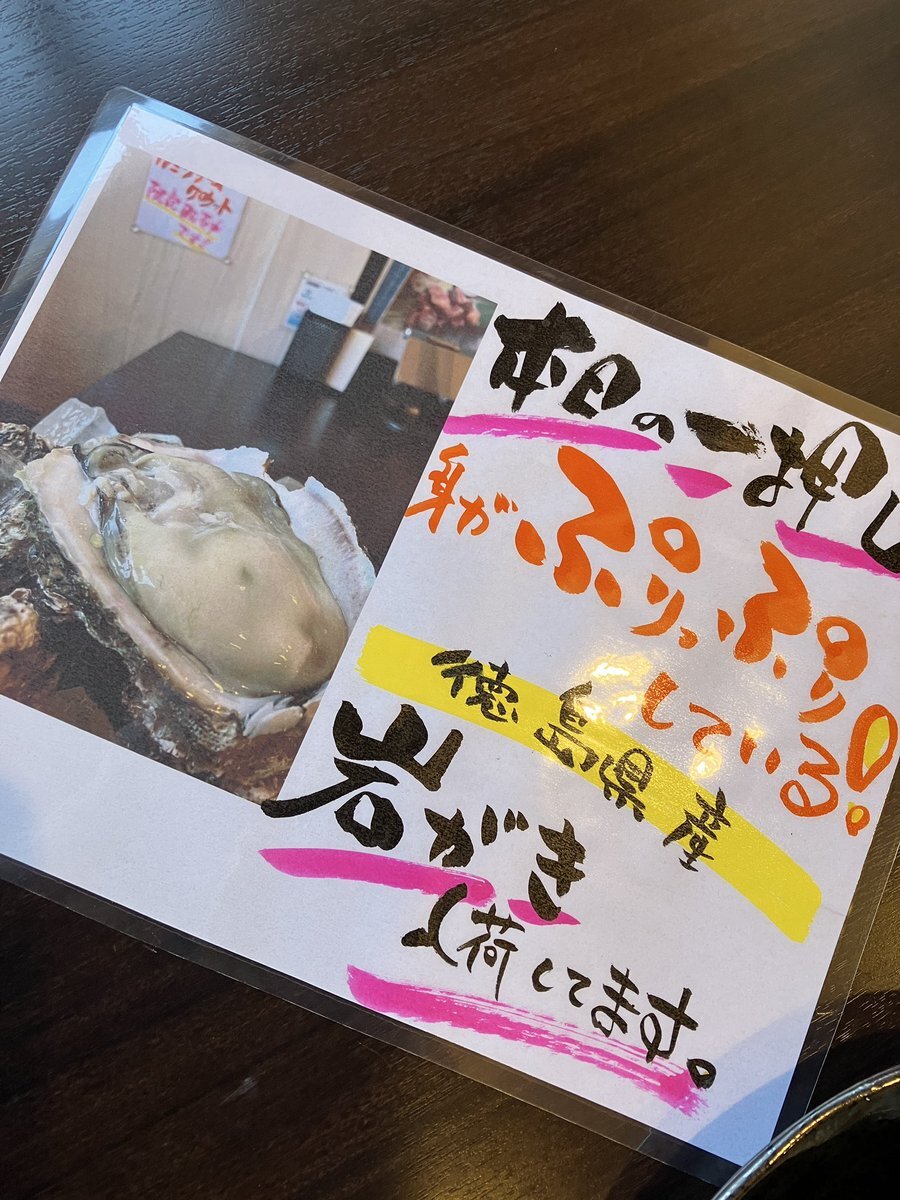 本日の一押し
身がぷりっぷり
している!
徳島県産
岩がき
入荷してます。